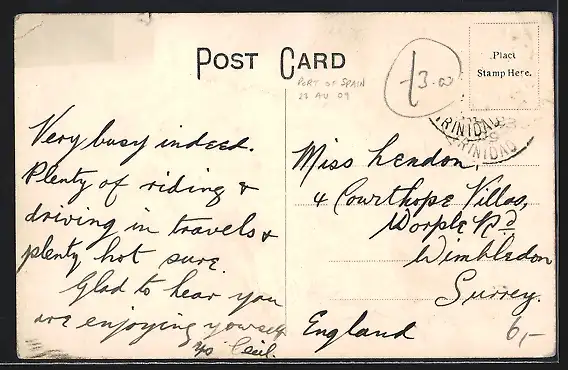 POST CARD
Place
Stamp Here.
PORT OF SPAIN
23 AU 09
13.00
TRINIDAD
TRINIDAD
Very busy indeed.
Plenty of riding &
driving in travels &
plenty hot sure.
Glad to hear you
are enjoying yourself
Cecil.
Miss Lendon,
4 Courthope Villas,
Worple Rd
Wimbledon
Surrey.
England
6,-